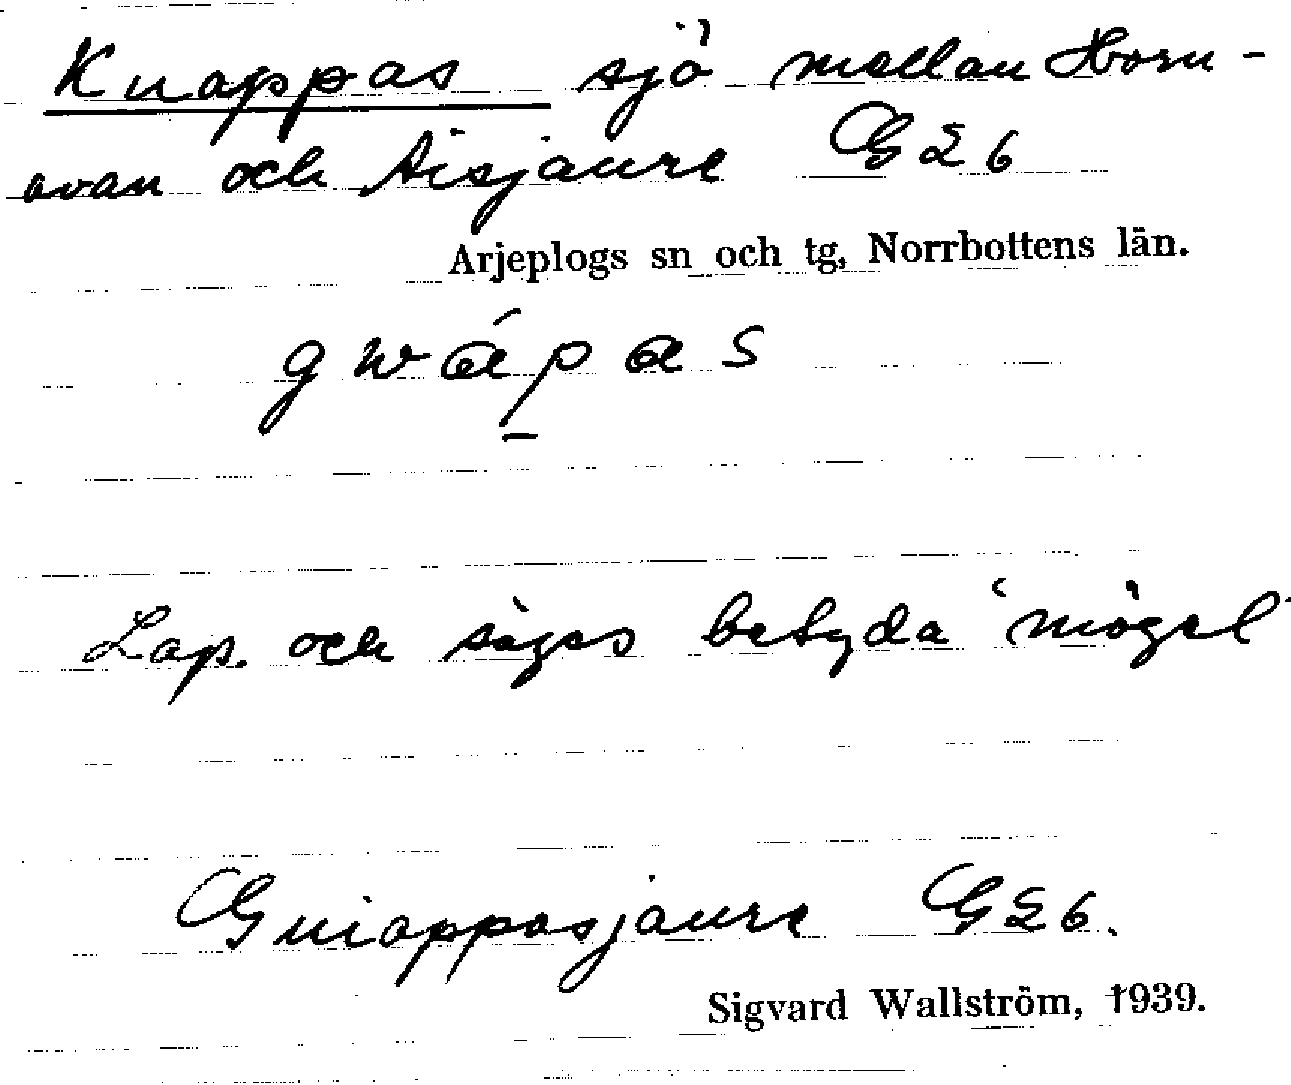 Knappas sjö mellan Horn-
avan och Aisjaure GΣ6
Arjeplogs sn och tg, Norrbottens län.
gwápas
Lap. och säges betyda 'mögel'
Guiappasjaure GΣ6.
Sigvard Wallström, 1939.